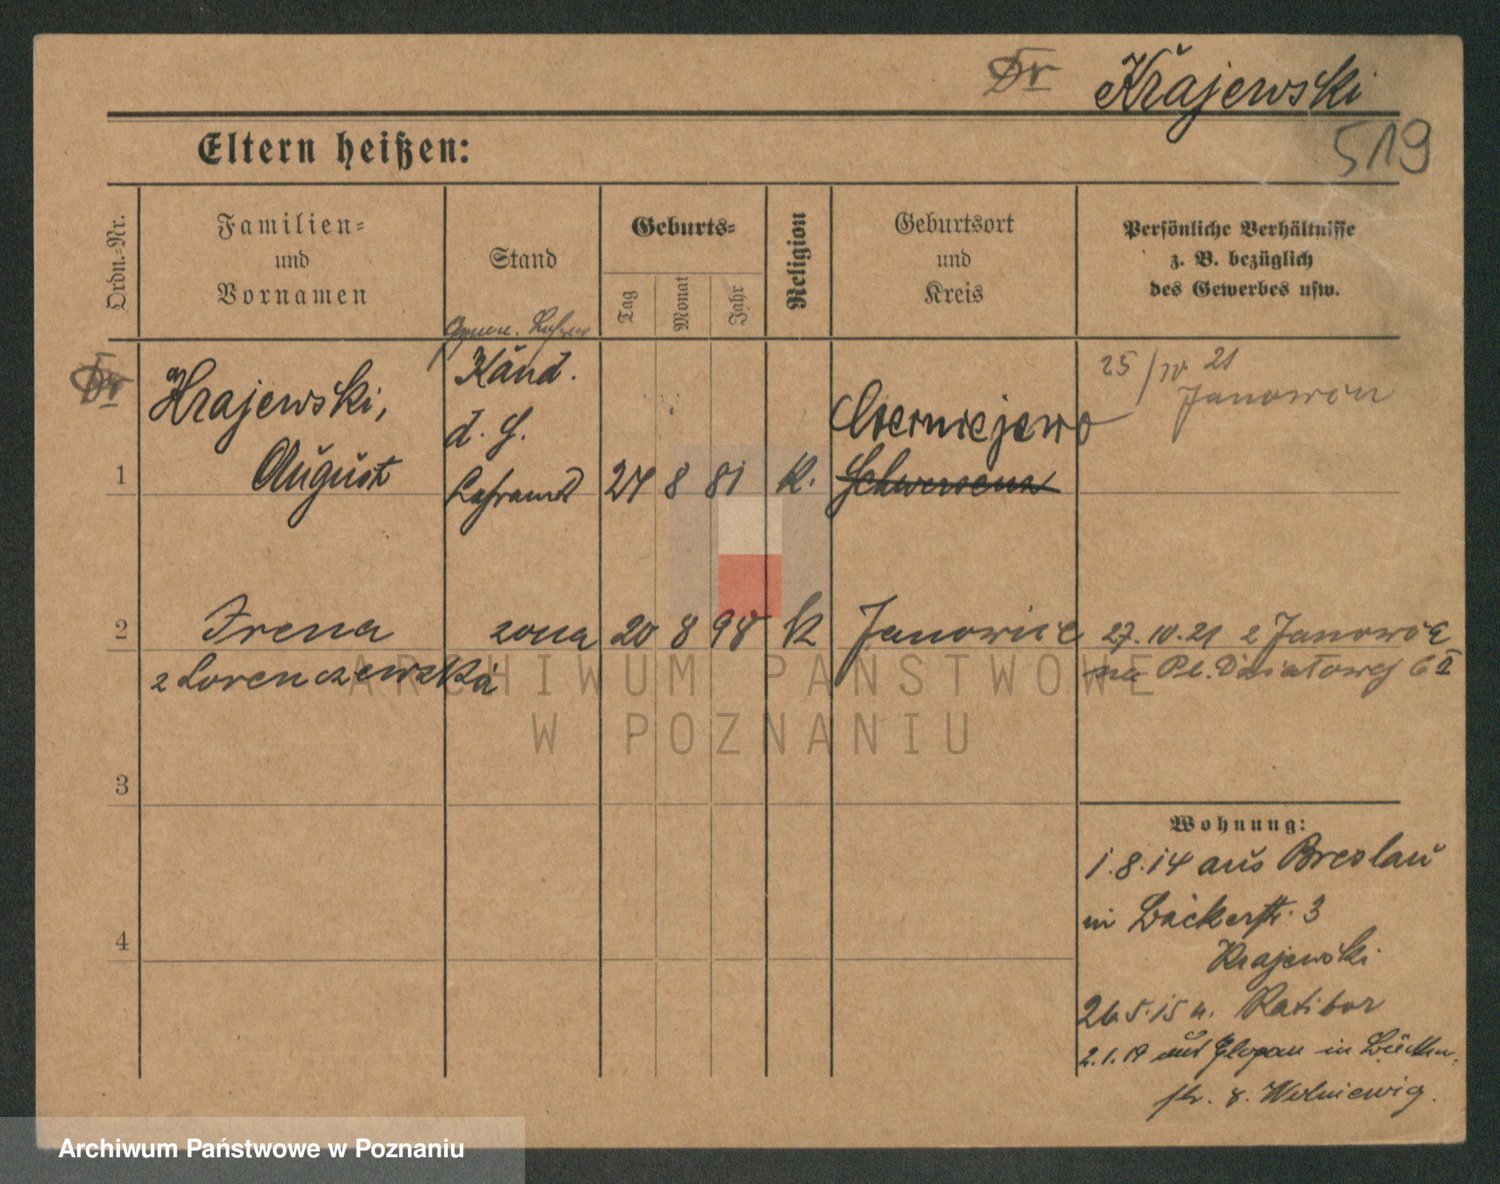 Dr Krajewski
519
Eltern heißen:
Ordn.-Nr.
Familien-
und
Vornamen
Stand
Geburts-
Tag
Monat
Jahr
Religion
Geburtsort
und
Kreis
Persönliche Verhältnisse
z. B. bezüglich
des Gewerbes usw.
Dr
1
Krajewski,
August
Kand.
d. h.
Lehramt
27 8 81 K.
Czerniejewo
Schwersenz
25/IV 21
Janowiec
2
Irena
z Lorenczewska
żona
20 8 98 K
Janowiec
27.10.21 z Janowca
na Pl. Działowej 6 II
3
4
Wohnung:
1.8.14 aus Breslau
in Bäckerstr. 3
Krajewski
26.5.15 n. Ratibor
2.1.19 aus Glogau in Bäcker-
str. 8.
ARCHIWUM PAŃSTWOWE
W POZNANIU
Archiwum Państwowe w Poznaniu